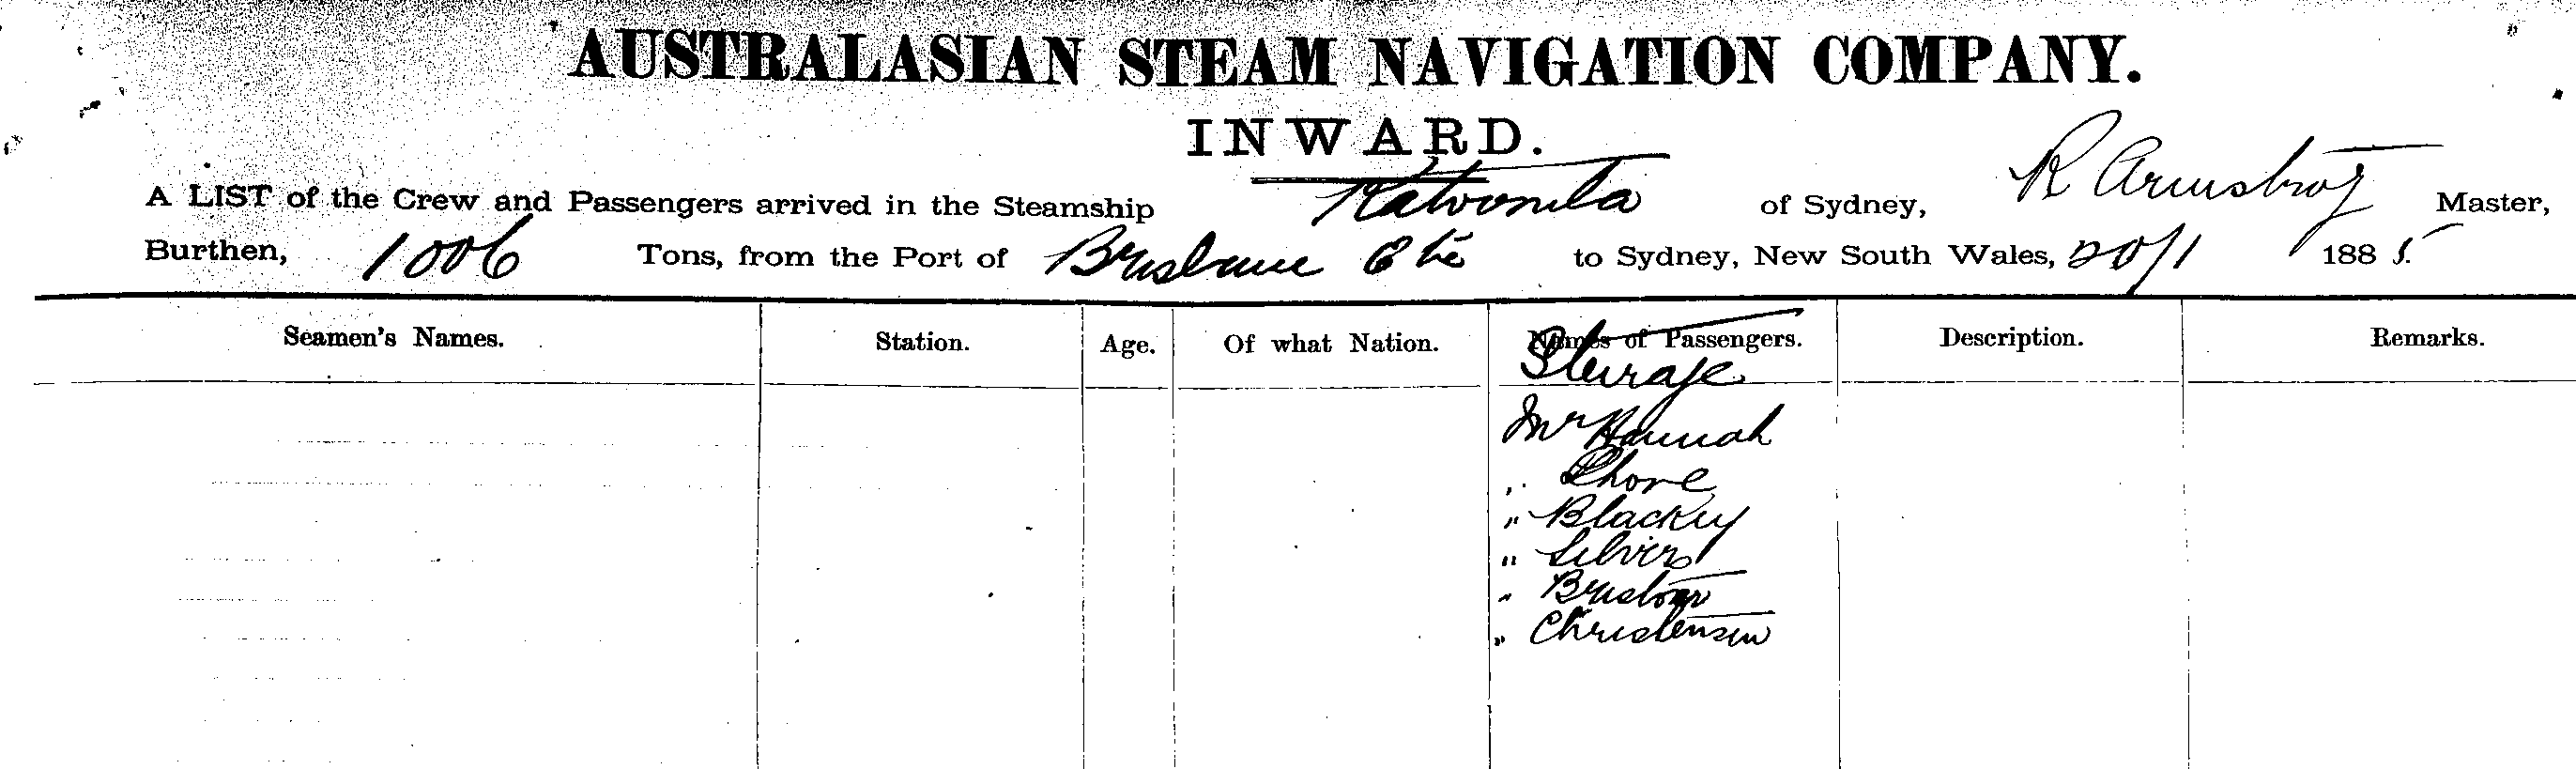 AUSTRALASIAN STEAM NAVIGATION COMPANY.
INWARD.
A LIST of the Crew and Passengers arrived in the Steamship Katoomba of Sydney, R Armstrong Master,
Burthen, 1006 Tons, from the Port of Brisbane &c to Sydney, New South Wales, 20/1 1885.
Seamen's Names. Station. Age. Of what Nation. Names of Passengers. Description. Remarks.
Steerage
Mr Hannah
" Shore
" Blackey
"
" Bristow
" Christensen